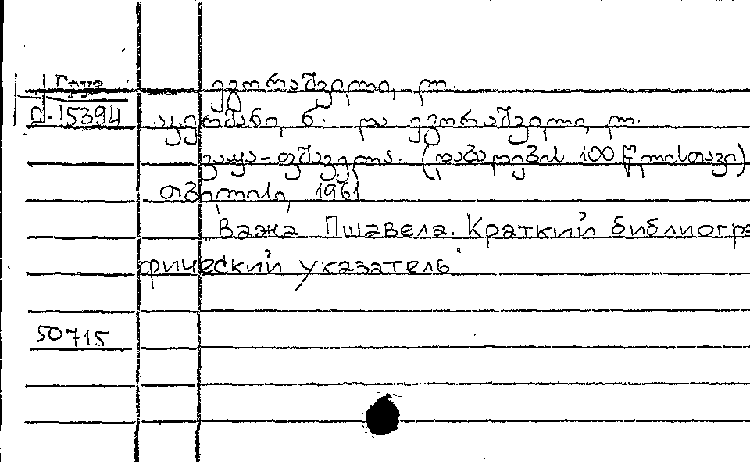 Груз ეგორაშვილი, ლ.
15394 ნ. და ეგორაშვილი, ლ.
ვაჟა-ფშაველა. (დაბადების 100 წლისთავი)
თბილისი, 1961
Важа Пшавела. Краткий библиогра
фический указатель
50715